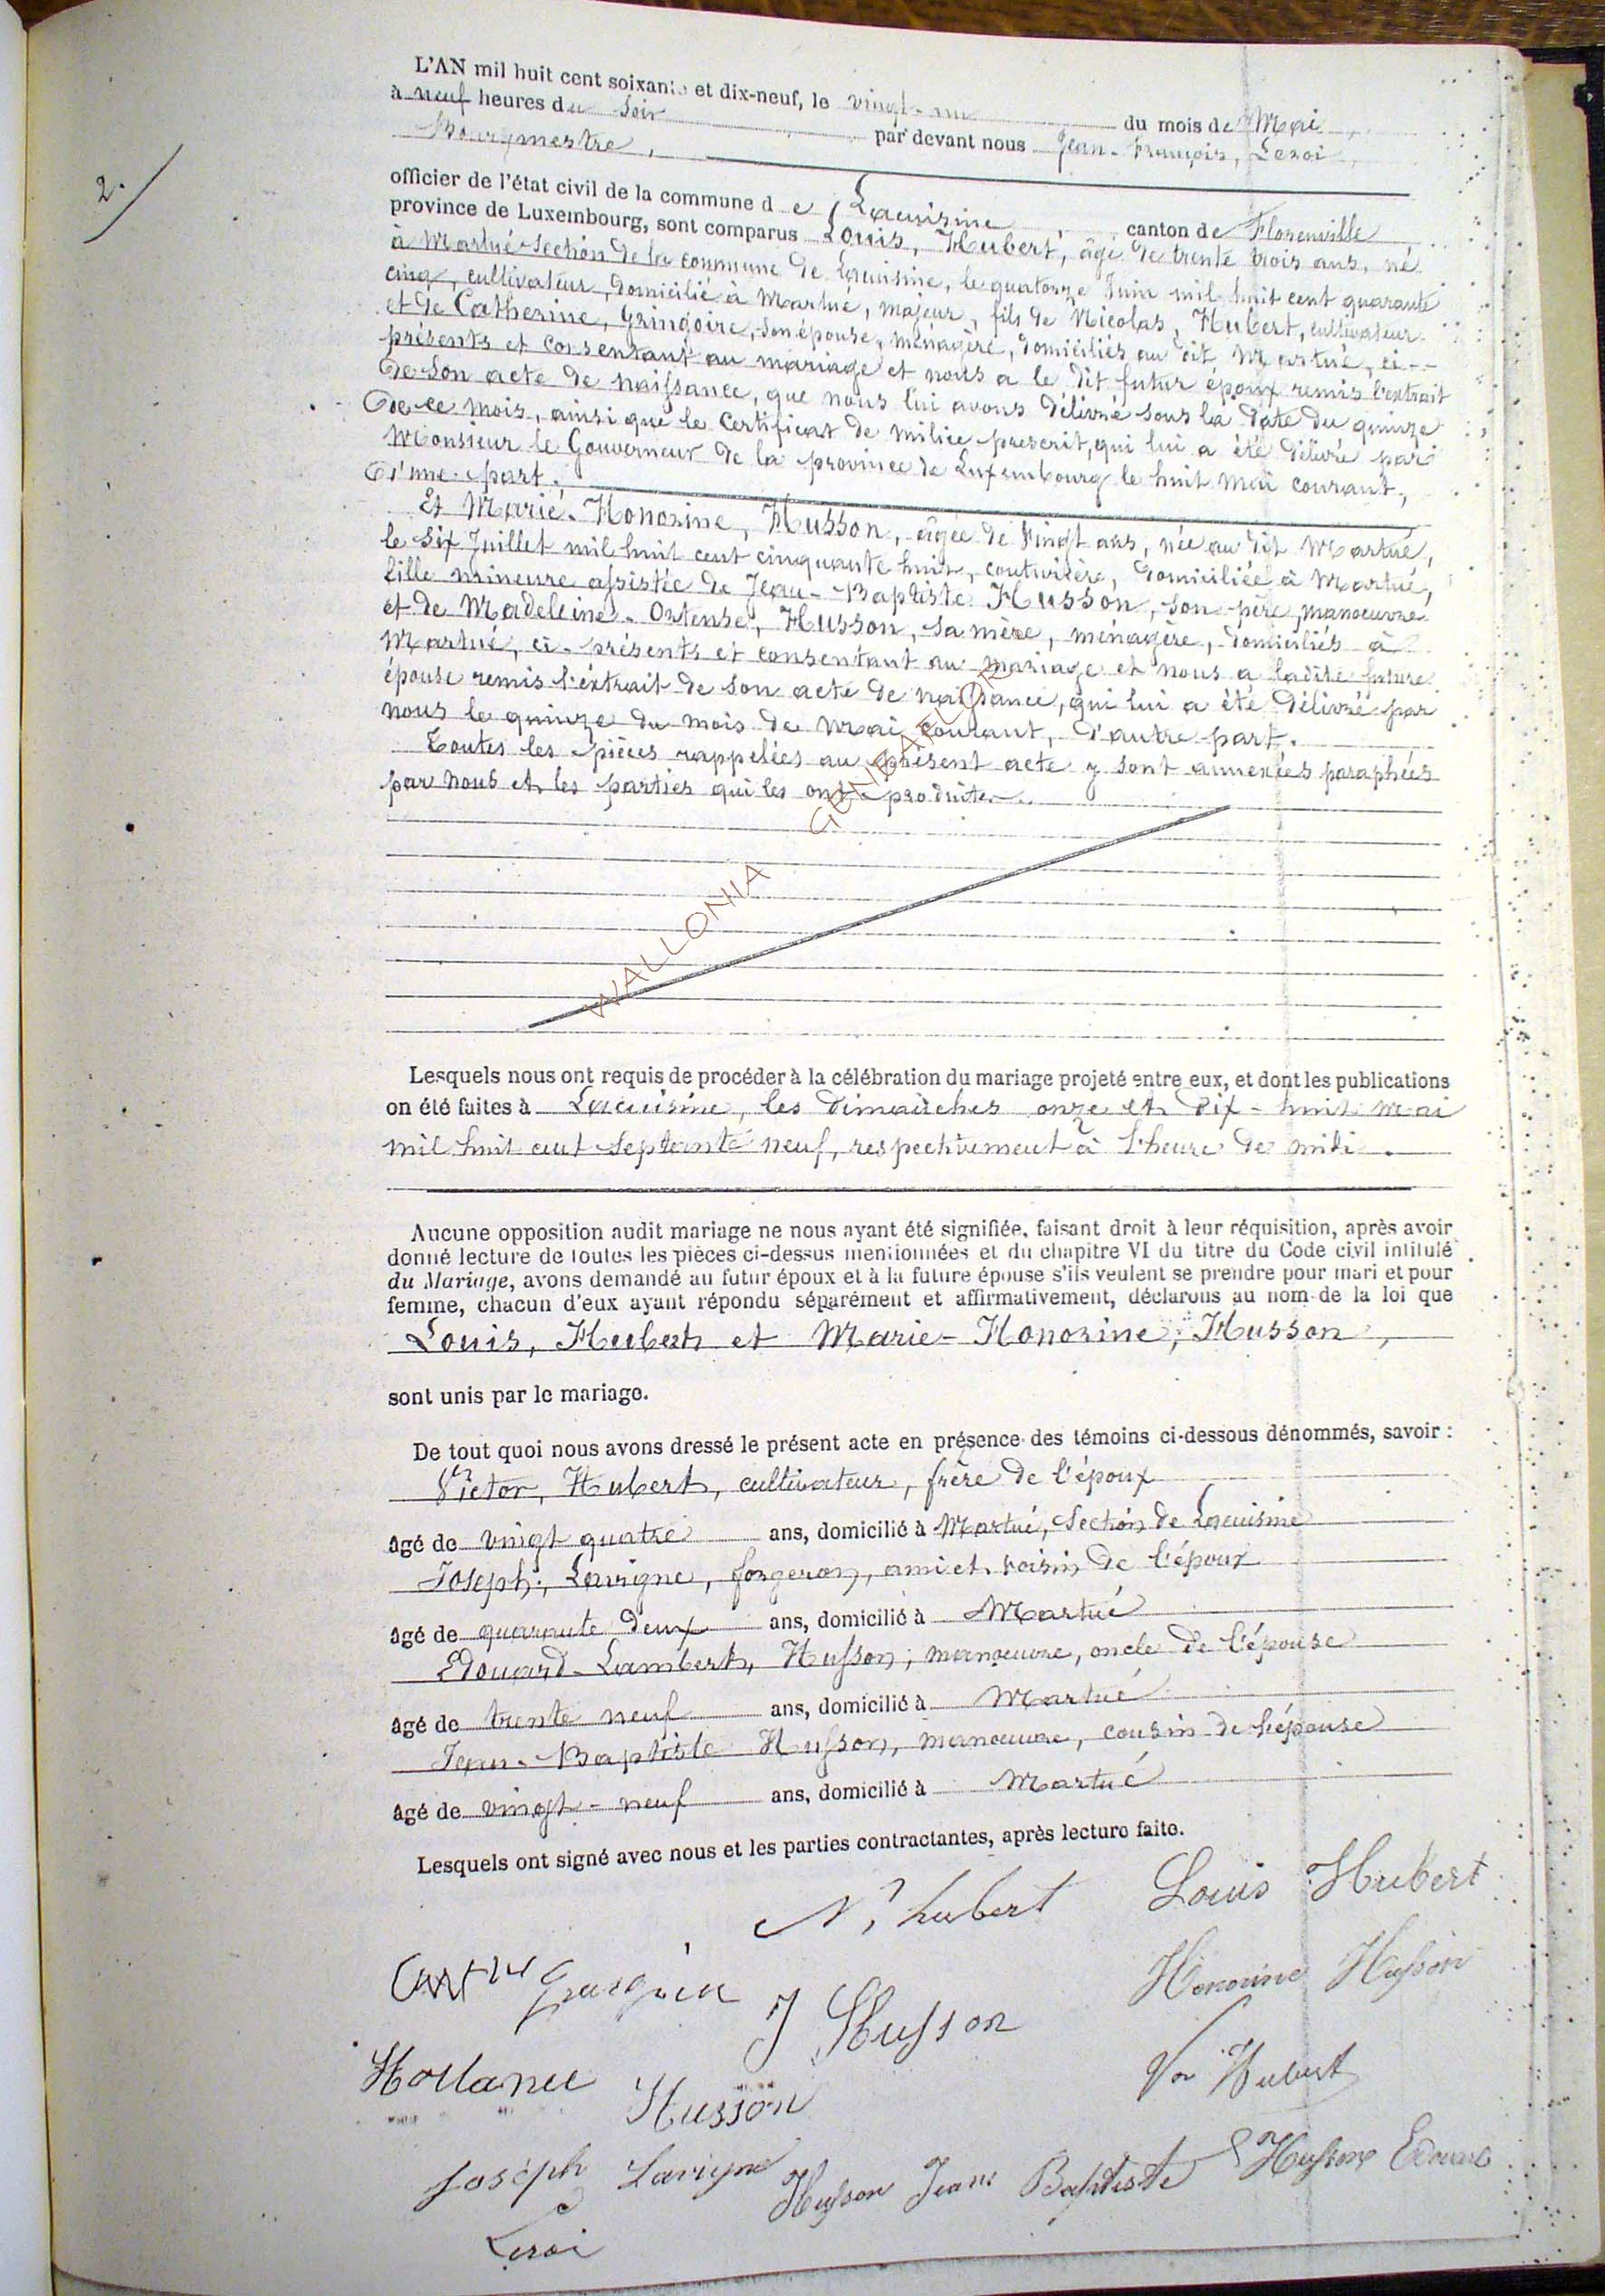 2.
L'AN mil huit cent soixante et dix-neuf, le vingt-un du mois de Mai
à neuf heures du soir par devant nous Jean-François, Leroi
Bourgmestre,
officier de l'état civil de la commune de Lacuisine canton de Florenville,
province de Luxembourg, sont comparus Louis, Hubert, âgé de trente trois ans, né
à Martué section de la commune de Lacuisine, le quatorze Juin mil huit cent quarante
cinq, cultivateur, domicilié à Martué, majeur, fils de Nicolas, Hubert, cultivateur
et de Catherine, Gringoire, son épouse, ménagère, domiciliés au dit Martué, ci-
présents et consentant au mariage et nous a le dit futur époux remis l'extrait
de son acte de naissance, que nous lui avons délivré sous la date du quinze
de ce mois, ainsi que le certificat de milice prescrit, qui lui a été délivré par
Monsieur le Gouverneur de la province de Luxembourg le huit mai courant,
d'une part.
Et Marie-Honorine, Husson, âgée de vingt ans, née au dit Martué,
le six Juillet mil huit cent cinquante huit, couturière, domiciliée à Martué,
fille mineure assistée de Jean-Baptiste Husson, son père, manoeuvre
et de Madeleine-Ortense, Husson, sa mère, ménagère, domiciliés à
Martué, ci-présents et consentant au mariage et nous a ladite future
épouse remis l'extrait de son acte de naissance, qui lui a été délivré par
nous le quinze du mois de Mai courant, d'autre part.
Toutes les pièces rappelées au présent acte y sont annexées paraphées
par nous et les parties qui les ont produites.
WALLONIA GENEAFLOR
Lesquels nous ont requis de procéder à la célébration du mariage projeté entre eux, et dont les publications
on été faites à Lacuisine, les dimanches onze et dix-huit mai
mil huit cent septante neuf, respectivement à l'heure de midi.
Aucune opposition audit mariage ne nous ayant été signifiée, faisant droit à leur réquisition, après avoir
donné lecture de toutes les pièces ci-dessus mentionnées et du chapitre VI du titre du Code civil intitulé
du Mariage, avons demandé au futur époux et à la future épouse s'ils veulent se prendre pour mari et pour
femme, chacun d'eux ayant répondu séparément et affirmativement, déclarons au nom de la loi que
Louis, Hubert et Marie-Honorine, Husson,
sont unis par le mariage.
De tout quoi nous avons dressé le présent acte en présence des témoins ci-dessous dénommés, savoir :
Victor, Hubert, cultivateur, frère de l'époux
âgé de vingt quatre ans, domicilié à Martué, section de Lacuisine
Joseph, Lavigne, forgeron, ami et voisin de l'époux
âgé de quarante deux ans, domicilié à Martué
Edouard-Lambert, Husson, manoeuvre, oncle de l'épouse
âgé de trente neuf ans, domicilié à Martué
Jean-Baptiste Husson, manoeuvre, cousin de l'épouse
âgé de vingt-neuf ans, domicilié à Martué
Lesquels ont signé avec nous et les parties contractantes, après lecture faite.
N. hubert Louis Hubert
Honorine Husson
J Husson
Vor Hubert
Husson
Joseph Lavigne Husson Jean Baptiste Husson Edouard
Leroi